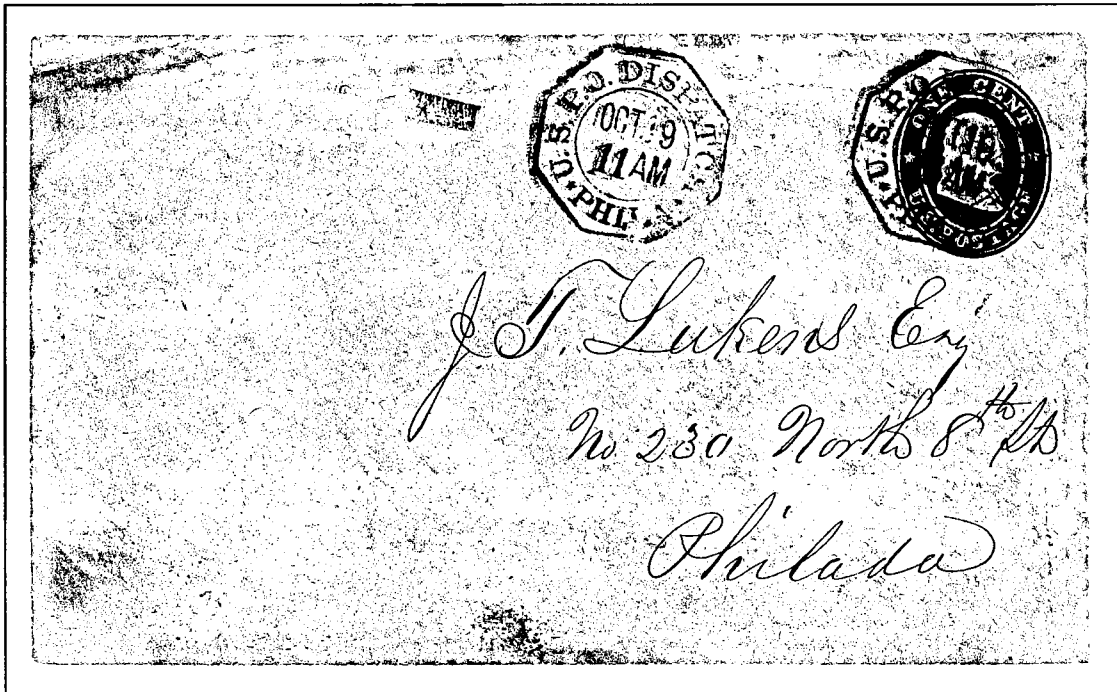 U.S.P.O. DISPATCH
OCT. 19
11 AM
PHILA
U.S.P.O.
ONE CENT
U.S. POSTAGE
J. T. Lukens Esq
No. 230 North 8th St
Philada